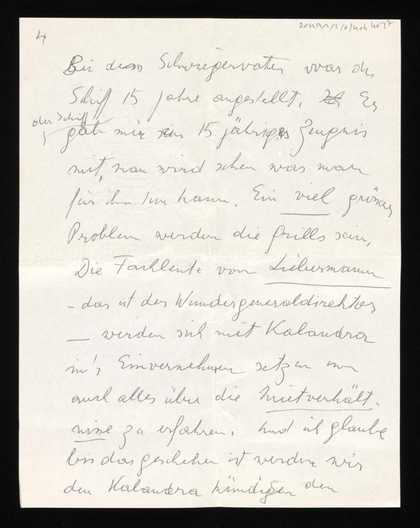 4
Bei dem Schwiegervater war der
Schiff 15 Jahre angestellt. Er
der Schiff
gab mir ein 15 jähriges Zeugnis
mit, man wird sehen was man
für ihn tun kann. Ein viel grösseres
Problem werden die Grills sein,
Die Fachleute von Liebermann
– das ist der Wundergeneraldirektor
– werden sich mit Kalandra
in's Einvernehmen setzen um
auch alles über die Mietverhält-
nisse zu erfahren. Und ich glaube
bis das geschehen ist werden wir
den Kalandra kündigen den